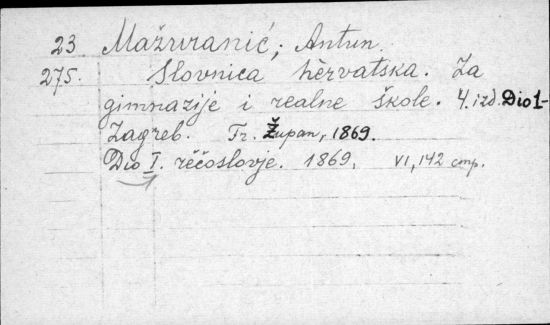 23 Mažuranić, Antun.
275. Slovnica hèrvatska. Za
gimnazije i realne škole. 4. izd. Dio 1-
Zagreb. Fr. Župan, 1869.
Dio I. rěčoslovje. 1869. VI, 142 стр.